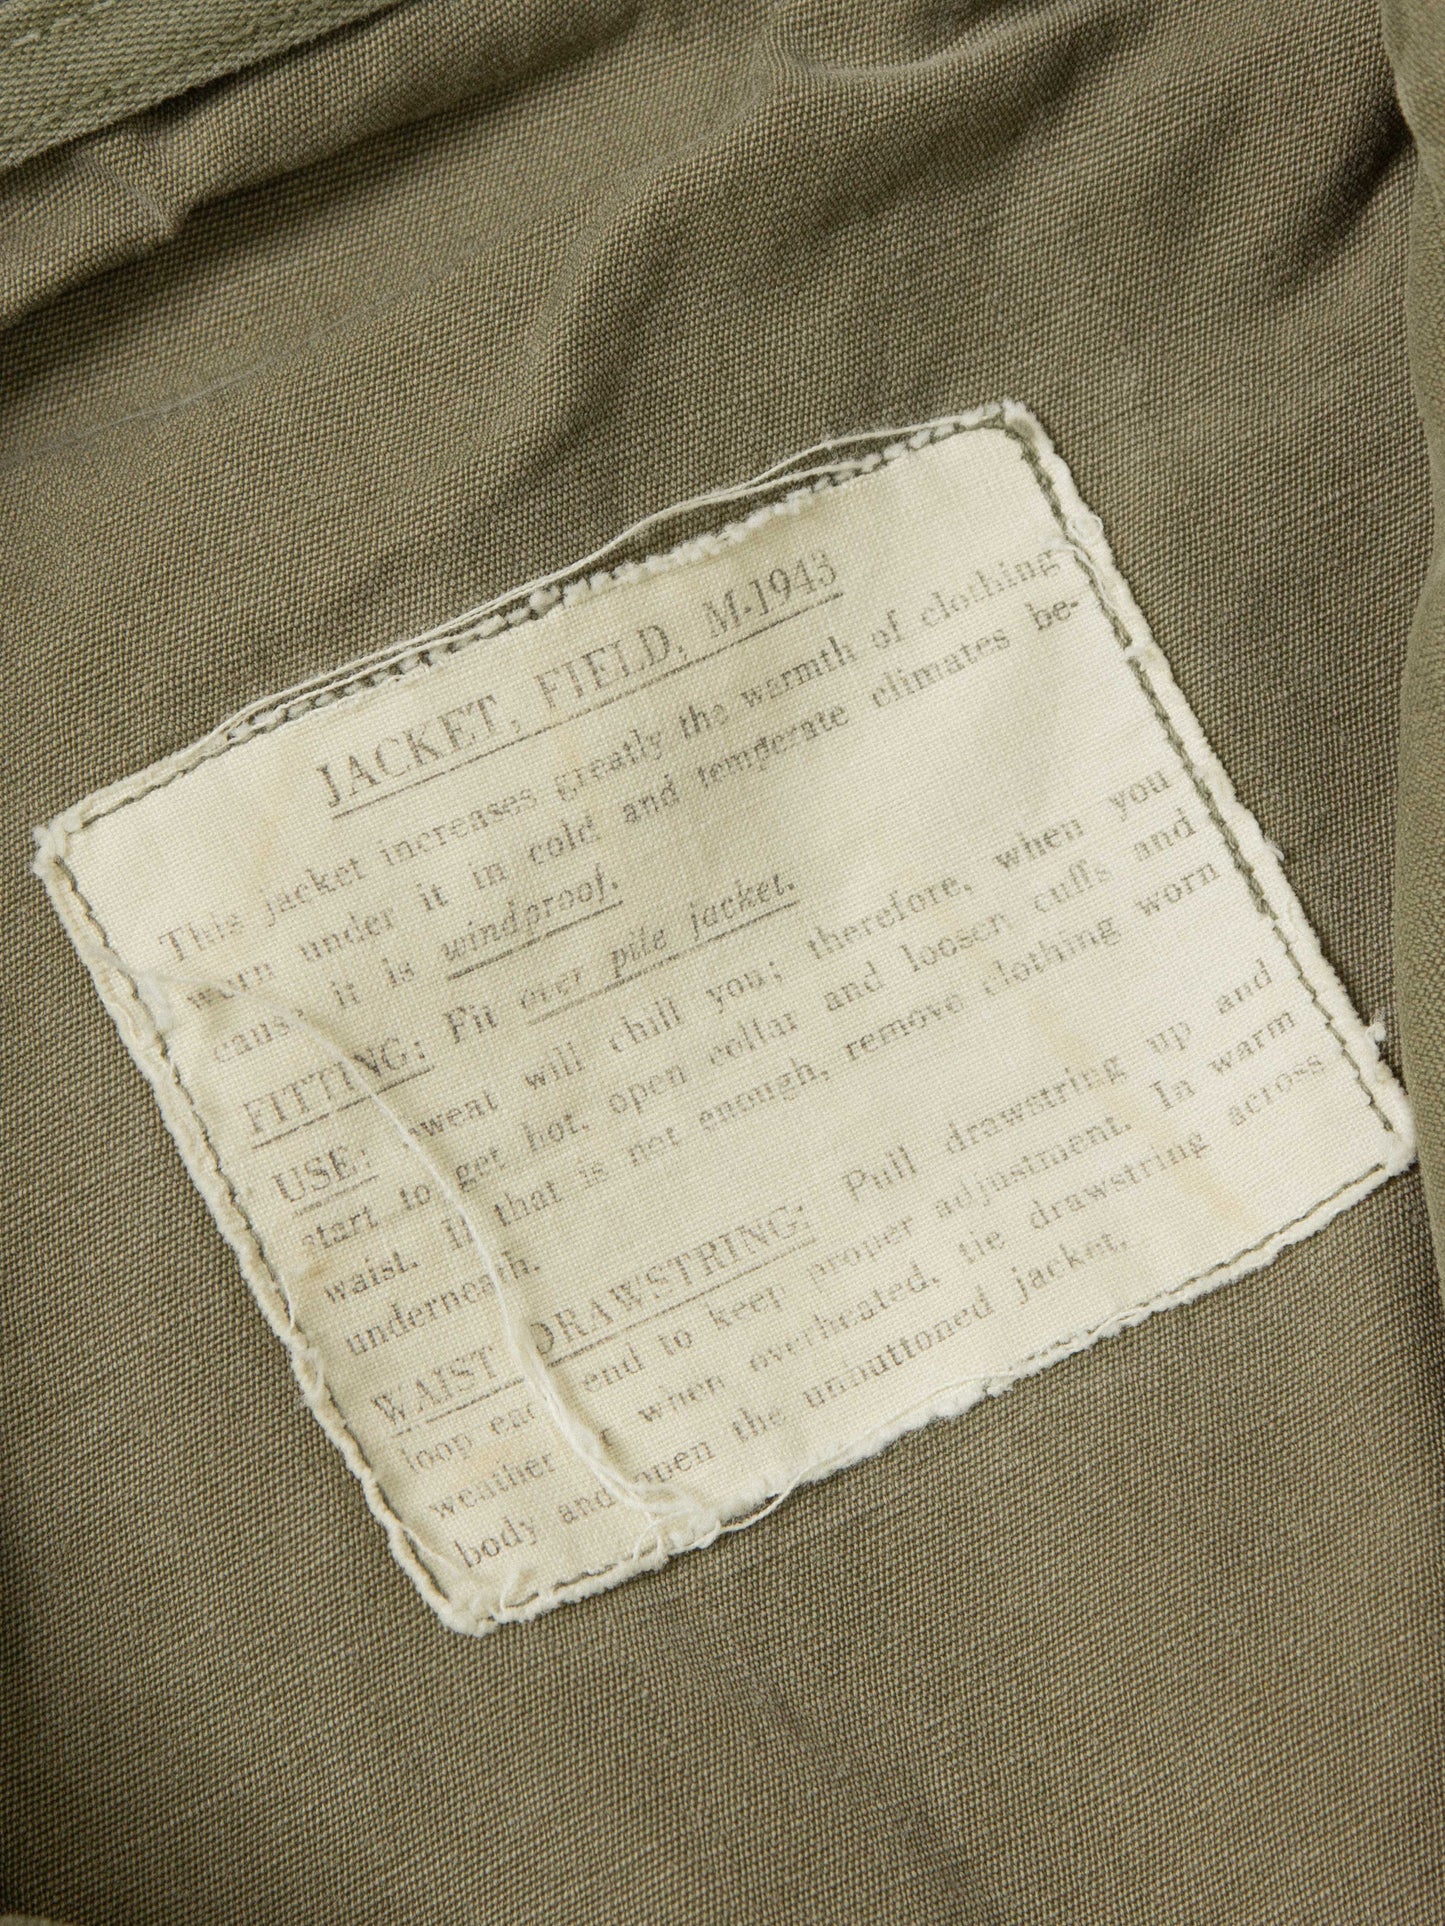 JACKET, FIELD, M-1943
This jacket increases greatly the warmth of clothing
worn under it in cold and temperate climates be-
cause it is windproof.
FITTING: Fit over pile jacket.
USE: Sweat will chill you; therefore, when you
start to get hot, open collar and loosen cuffs and
waist. If that is not enough, remove clothing worn
underneath.
WAIST DRAWSTRING: Pull drawstring up and
loop each end to keep proper adjustment. In warm
weather or when overheated, tie drawstring across
body and open the unbuttoned jacket.